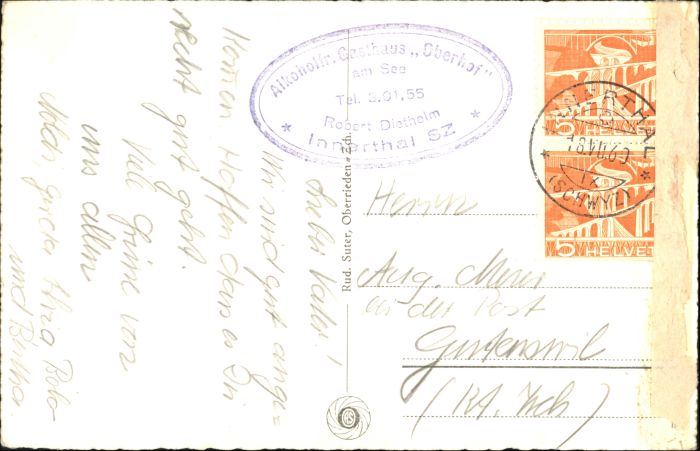 Lieber Vater!
Wir sind gut ange-
kommen Hoffen dass es Dir
recht gut geht.
Viele Grüsse von
uns allen
und Bertha
Alkoholfr. Gasthaus „Oberhof"
am See
Tel. 3.01.55
Robert Diethelm
* Innerthal SZ *
Rud. Suter, Oberrieden-Zch.
INNERTHAL
(SCHWYZ)
5 HELVETIA
5 HELVETIA
Herrn
Aug. Meier
an der Post
Gutenswil
(Kt. Zch)